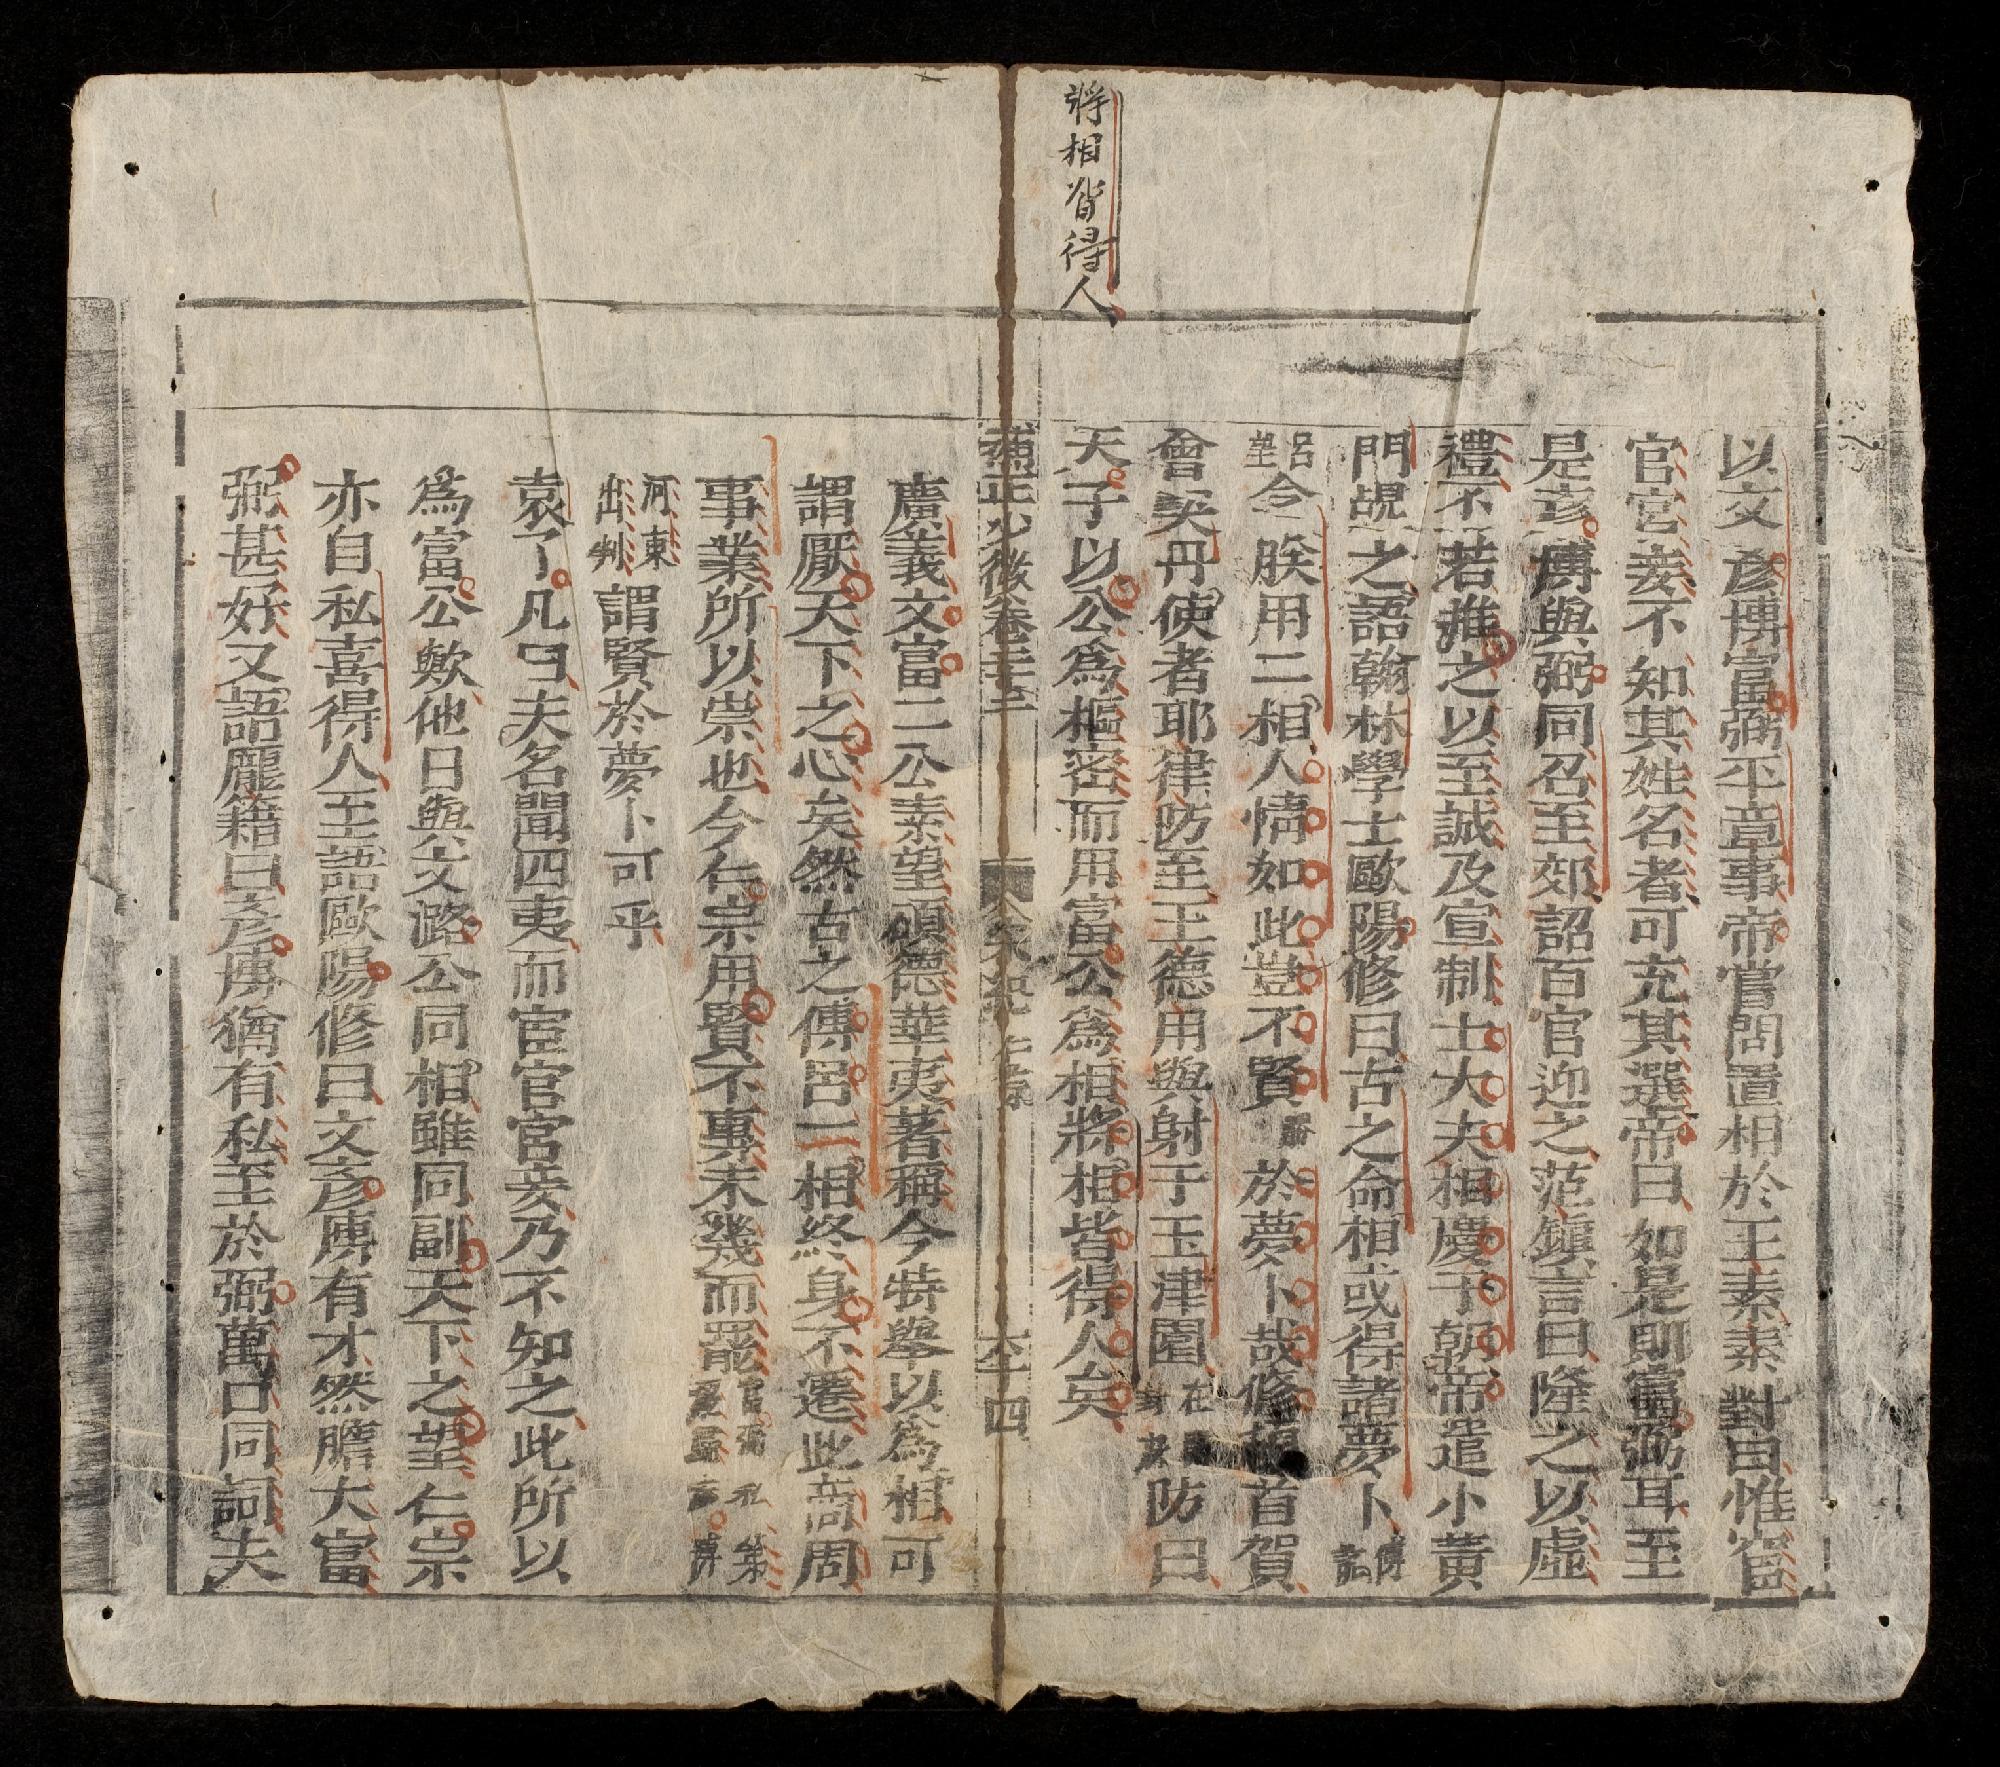 將相皆得人
以文彥博富弼平章事帝嘗問置相於王素素對曰惟宦
官宮妾不知其姓名者可充其選帝曰如是則富弼耳至
是彥博與弼同召至郊詔百官迎之范鎮言曰隆之以虛
禮不若推之以至誠及宣制士大夫相慶于朝帝遣小黃
門覘之語翰林學士歐陽修曰古之命相或得諸夢卜傅說
呂望今朕用二相人情如此豈不賢於夢卜哉修頓首賀
會契丹使者耶律防至王德用與射于玉津園防曰
天子以公為樞密而用富公為相將相皆得人矣
少微卷三十三 宋紀 仁宗 六十四
廣義文富二公素望碩德華夷著稱今特舉以為相可
謂厭天下之心矣然古之傅呂二相終身不遷此商周
事業所以崇也今仁宗用賢不專未幾而罷
河東出判謂賢於夢卜可乎
袁了凡曰夫名聞四夷而宦官宮妾乃不知之此所以
為富公歟他日與文潞公同相雖同副天下之望仁宗
亦自私喜得人至語歐陽修曰文彥博有才然膽大富
弼甚好又語龐籍曰彥博猶有私至於弼萬口同詞夫